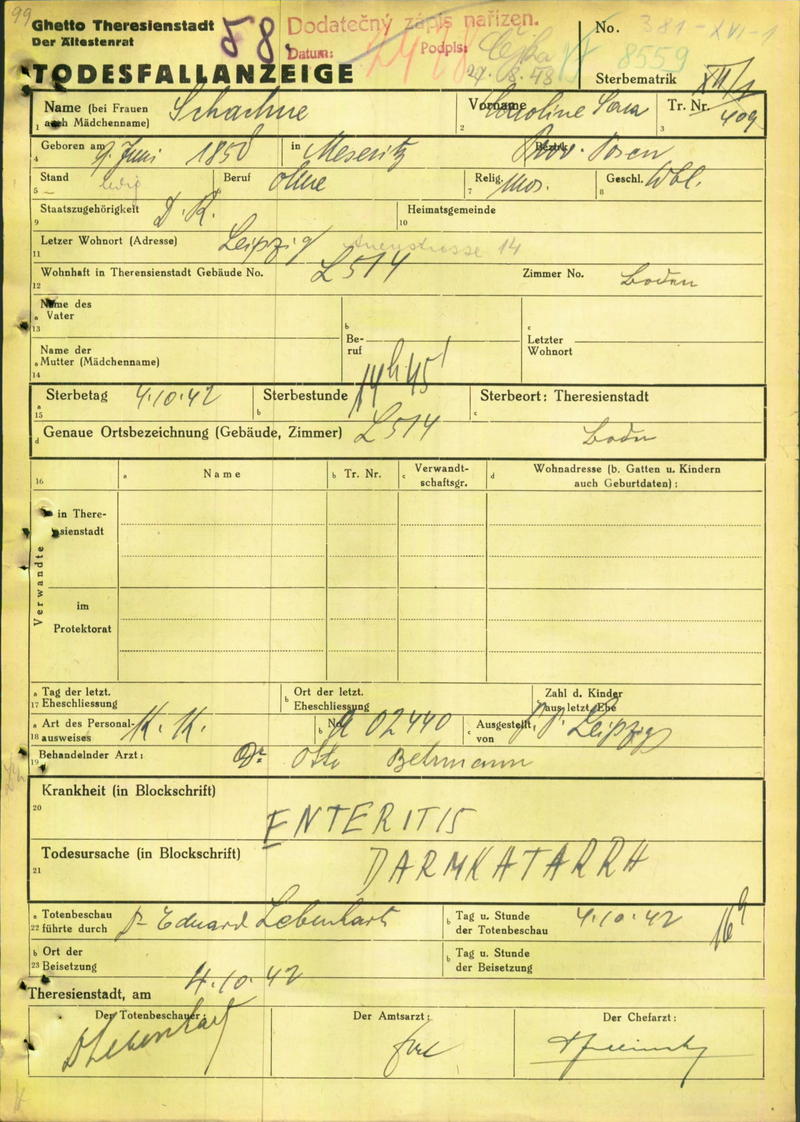 99
Ghetto Theresienstadt
Der Ältestenrat
58.
Dodatečný zápis nařízen.
Datum:
Podpis:
24. 8. 48
No. 381-XVI-1
8559
TODESFALLANZEIGE
Sterbematrik XII/1
Name (bei Frauen auch Mädchenname) Schachne
1
Vorname Caroline Sara
2
Tr. Nr. 409
3
4 Geboren am 9. Juni 1858 in Meseritz
Bezirk Prov. Posen
5 Stand ledig
Beruf Ohne
7 Relig. mos.
8 Geschl. Wbl.
9 Staatszugehörigkeit D. R.
10 Heimatsgemeinde
11 Letzer Wohnort (Adresse) Leipzig 14
12 Wohnhaft in Therensienstadt Gebäude No. L514
Zimmer No. Boden
13 a Name des Vater
b Beruf
c Letzter Wohnort
14 a Name der Mutter (Mädchenname)
15 a Sterbetag 4.10.42
b Sterbestunde 14h45'
c Sterbeort: Theresienstadt
d Genaue Ortsbezeichnung (Gebäude, Zimmer) L514 Boden
16 a Name
b Tr. Nr.
c Verwandtschaftsgr.
d Wohnadresse (b. Gatten u. Kindern auch Geburtdaten):
Verwandte
in Theresienstadt
im Protektorat
17 a Tag der letzt. Eheschliessung
b Ort der letzt. Eheschliessung
Zahl d. Kinder aus letzt. Ehe
18 a Art des Personalausweises K. K.
b No. A 02440
c Ausgestellt von P. P. Leipzig
19 Behandelnder Arzt: Dr Otto Behmann
20 Krankheit (in Blockschrift)
ENTERITIS
21 Todesursache (in Blockschrift)
DARMKATARRH
22 a Totenbeschau führte durch Dr Eduard Lebenhart
b Tag u. Stunde der Totenbeschau 4.10.42 16h
23 b Ort der Beisetzung
b Tag u. Stunde der Beisetzung
Theresienstadt, am 4.10.42
Der Totenbeschauer: Dr Lebenhart
Der Amtsarzt:
Der Chefarzt: